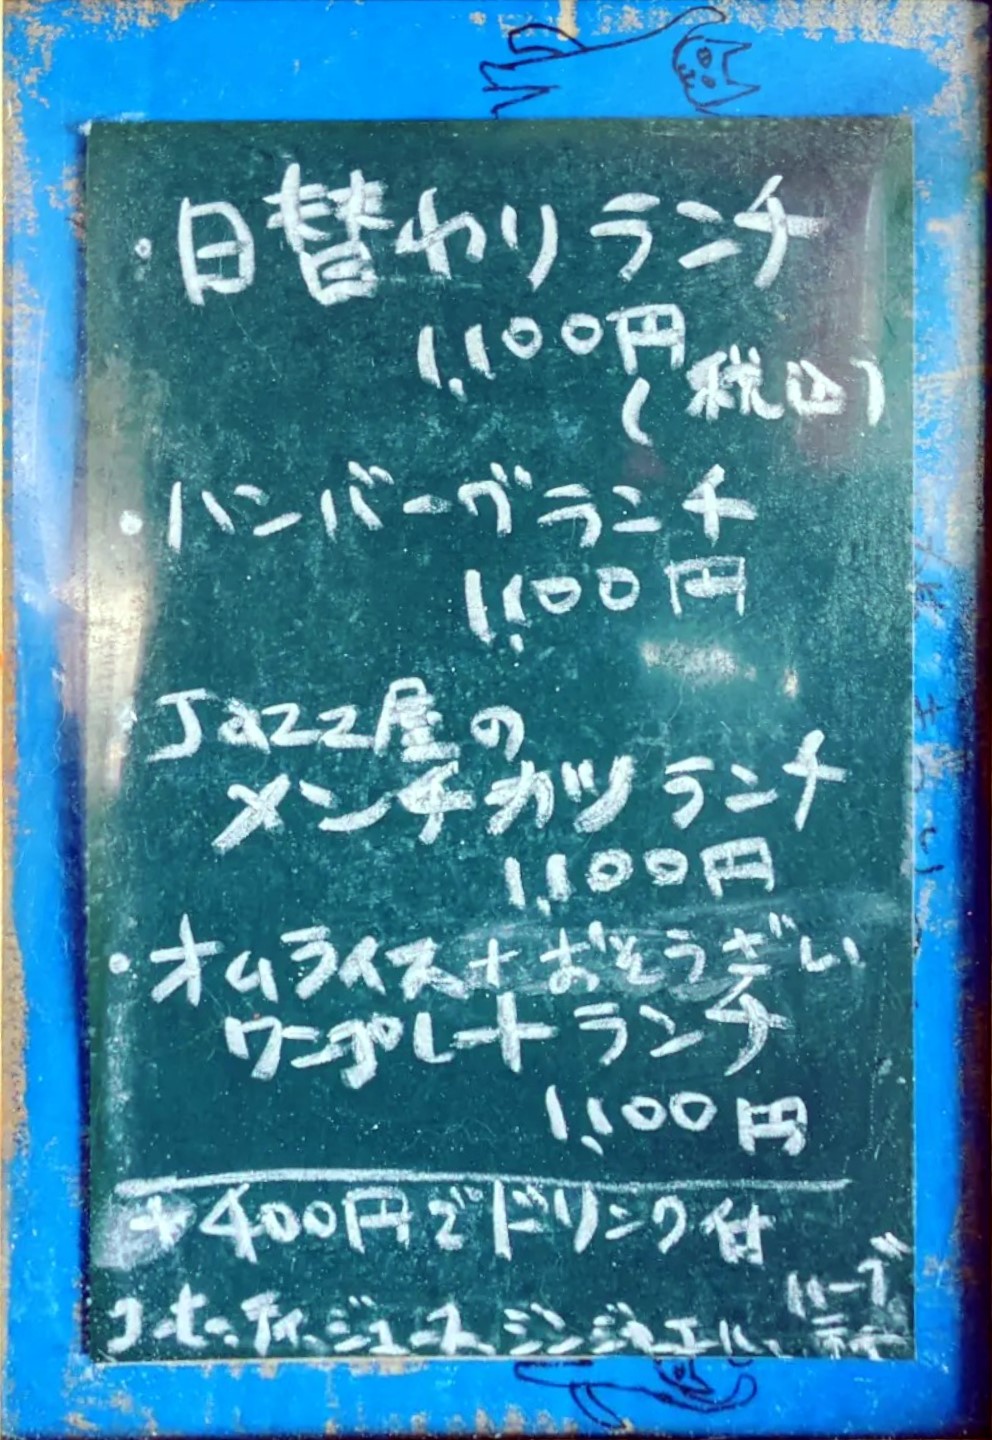 ・日替わりランチ
1,100円
(税込)
・ハンバーグランチ
1,100円
・Jazz屋の
メンチカツランチ
1,100円
・オムライス+おそうざい
ワンプレートランチ
1,100円
+400円でドリンク付
コーヒー、ティ、ジュース、ジンジャエール、ハーブティー